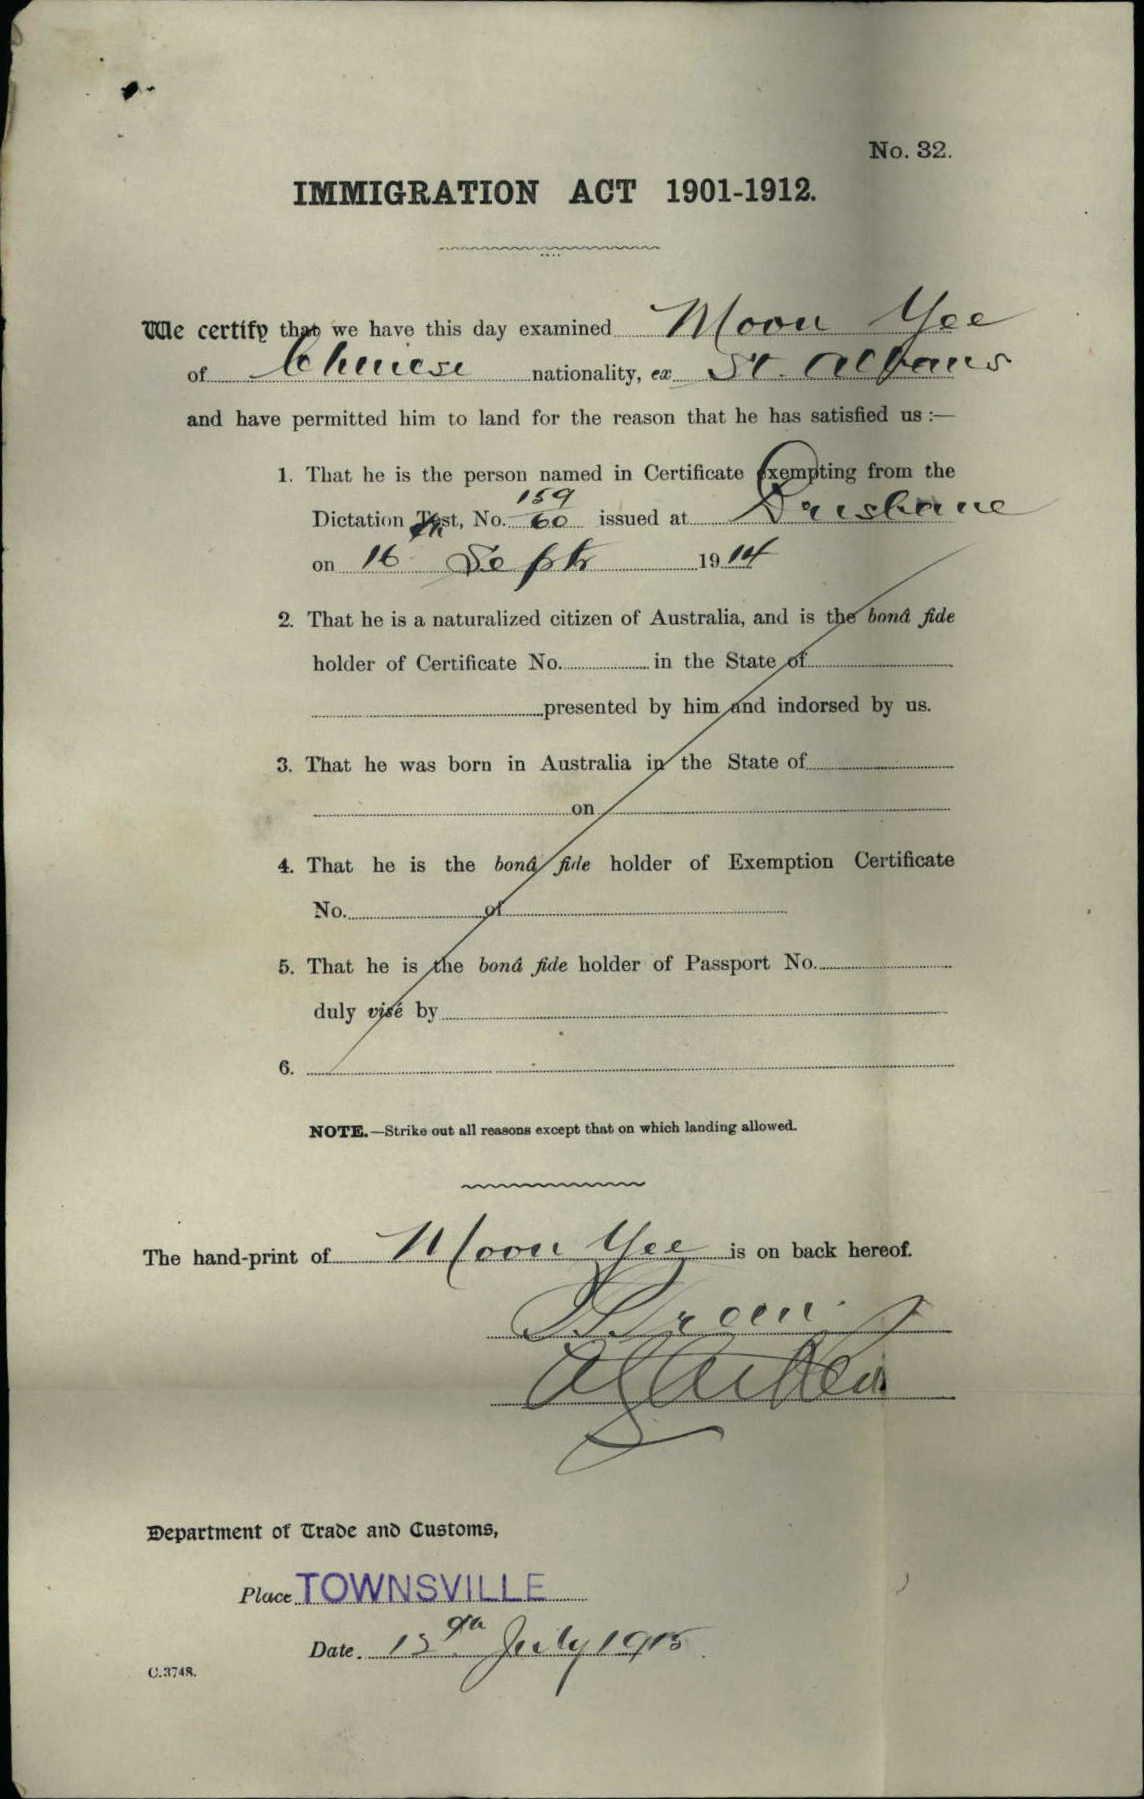 No. 32.
IMMIGRATION ACT 1901-1912.
We certify that we have this day examined Moon Yee
of Chinese nationality, ex St. Albans
and have permitted him to land for the reason that he has satisfied us :—
1. That he is the person named in Certificate exempting from the
159
Dictation Test, No. 60 issued at Brisbane
on 16th Septr 1914
2. That he is a naturalized citizen of Australia, and is the bonâ fide
holder of Certificate No. in the State of
presented by him and indorsed by us.
3. That he was born in Australia in the State of
on
4. That he is the bonâ fide holder of Exemption Certificate
No. of
5. That he is the bonâ fide holder of Passport No.
duly visé by
6.
NOTE.—Strike out all reasons except that on which landing allowed.
The hand-print of Moon Yee is on back hereof.
Department of Trade and Customs,
Place TOWNSVILLE
Date. 13th July 1915
C.3748.